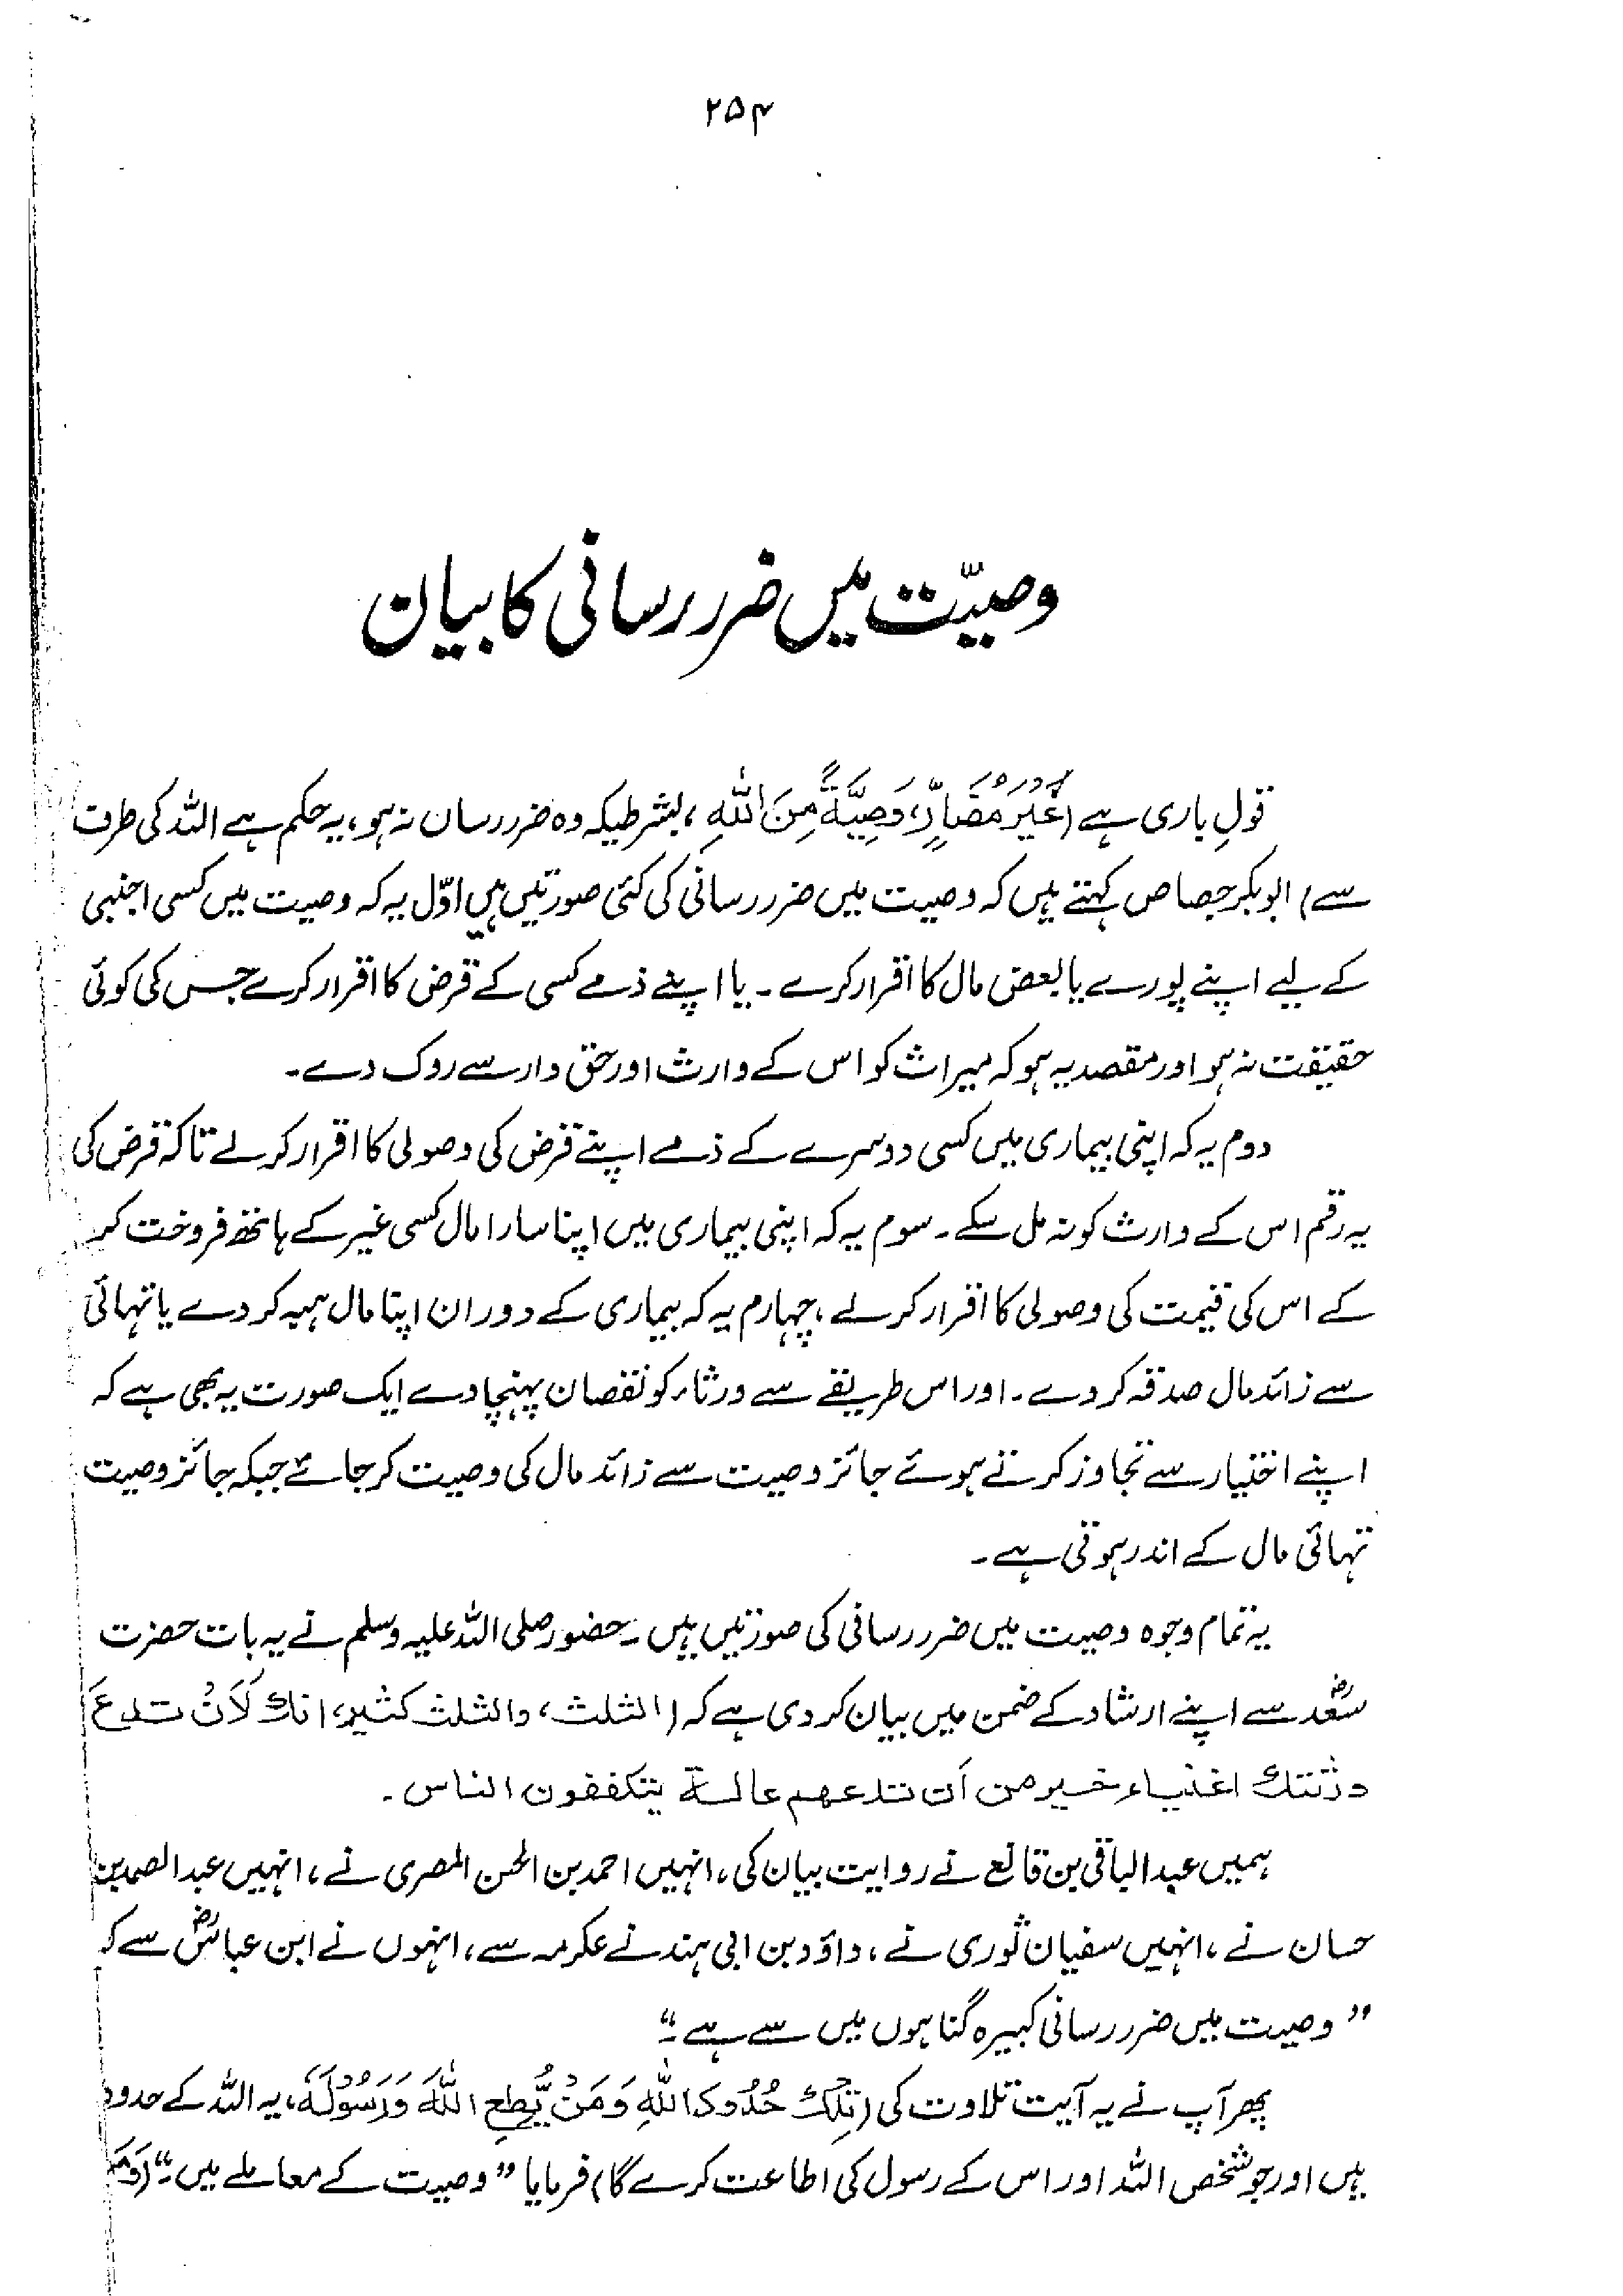 ۲۵۴
وصیّت میں ضرر رسانی کا بیان
قولِ باری ہے (غَیْرَ مُضَارٍّ، وَصِیَّةً مِنَ اللهِ، بشرطیکہ وہ ضرر رساں نہ ہو، یہ حکم ہے اللہ کی طرف
سے) ابوبکر جصاص کہتے ہیں کہ وصیت میں ضرر رسانی کی کئی صورتیں ہیں اوّل یہ کہ وصیت میں کسی اجنبی
کے لیے اپنے پورے یا بعض مال کا اقرار کرے۔ یا اپنے ذمے کسی کے قرض کا اقرار کرے جس کی کوئی
حقیقت نہ ہو اور مقصد یہ ہو کہ میراث کو اس کے وارث اور حق دار سے روک دے۔
دوم یہ کہ اپنی بیماری میں کسی دوسرے کے ذمے اپنے قرض کی وصولی کا اقرار کرلے تاکہ قرض کی
یہ رقم اس کے وارث کو نہ مل سکے۔ سوم یہ کہ اپنی بیماری میں اپنا سارا مال کسی غیر کے ہاتھ فروخت کر
کے اس کی قیمت کی وصولی کا اقرار کرلے، چہارم یہ کہ بیماری کے دوران اپنا مال ہبہ کردے یا تہائی
سے زائد مال صدقہ کردے۔ اور اس طریقے سے ورثاء کو نقصان پہنچا دے ایک صورت یہ بھی ہے کہ
اپنے اختیار سے تجاوز کرتے ہوئے جائز وصیت سے زائد مال کی وصیت کر جائے جبکہ جائز وصیت
تہائی مال کے اندر ہوتی ہے۔
یہ تمام وجوہ وصیت میں ضرر رسانی کی صورتیں ہیں۔ حضور صلی اللہ علیہ وسلم نے یہ بات حضرت
سعدؓ سے اپنے ارشاد کے ضمن میں بیان کردی ہے کہ (الثلث، والثلث کثیر، انک لَاَنْ تدعَ
ورثتک اغنیاء خیر من أن تدعهم عالة یتکففون الناس۔
ہمیں عبدالباقی بن قانع نے روایت بیان کی، انہیں احمد بن الحسن المصری نے، انہیں عبدالصمد بن
حسان نے، انہیں سفیان ثوری نے، داؤد بن ابی ہند نے عکرمہ سے، انہوں نے ابن عباسؓ سے کہ
”وصیت میں ضرر رسانی کبیرہ گناہوں میں سے ہے۔“
پھر آپ نے یہ آیت تلاوت کی (تِلْکَ حُدُودُ اللهِ وَمَنْ یُّطِعِ اللهَ وَرَسُوْلَهٗ، یہ اللہ کے حدود
ہیں اور جو شخص اللہ اور اس کے رسول کی اطاعت کرے گا) فرمایا ”وصیت کے معاملے میں۔“ (وَمَنْ